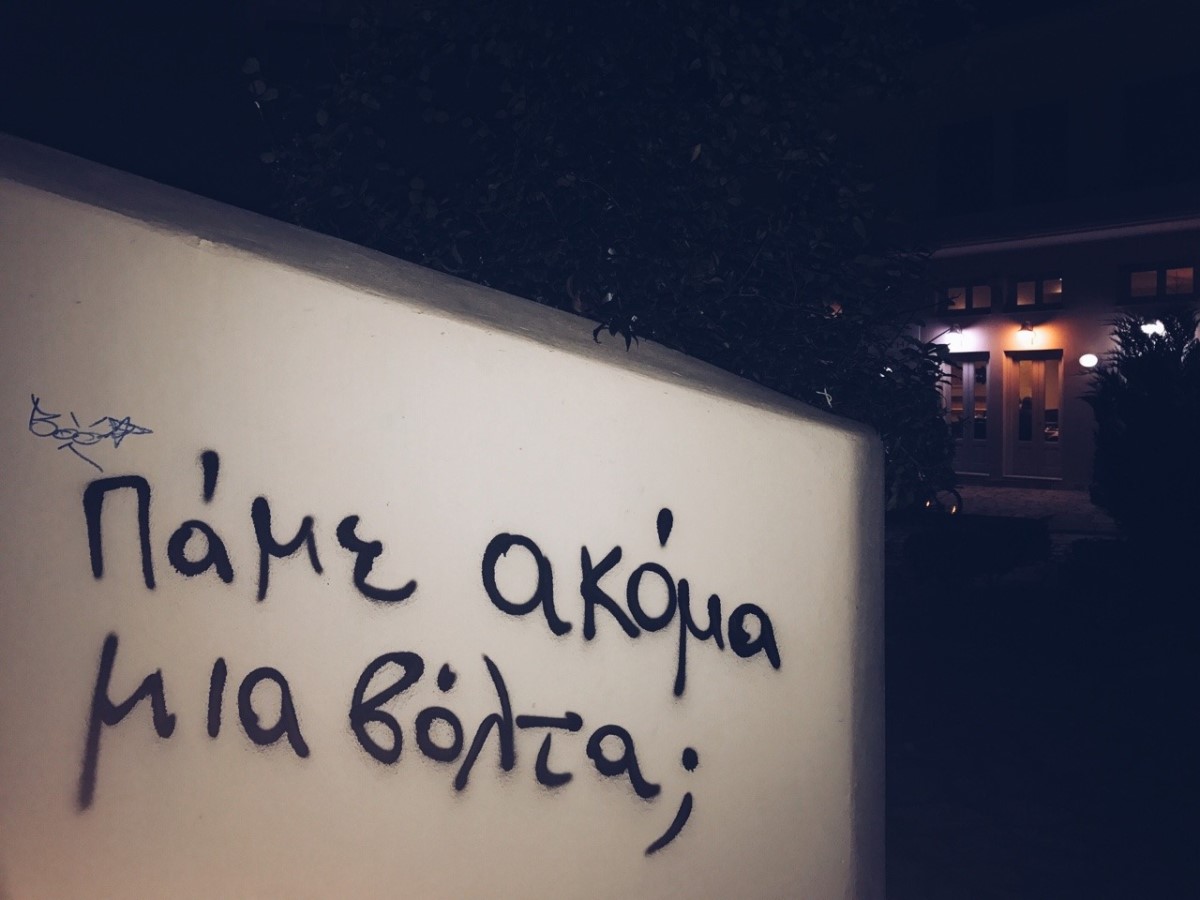 Πάμε ακόμα
μια βόλτα;